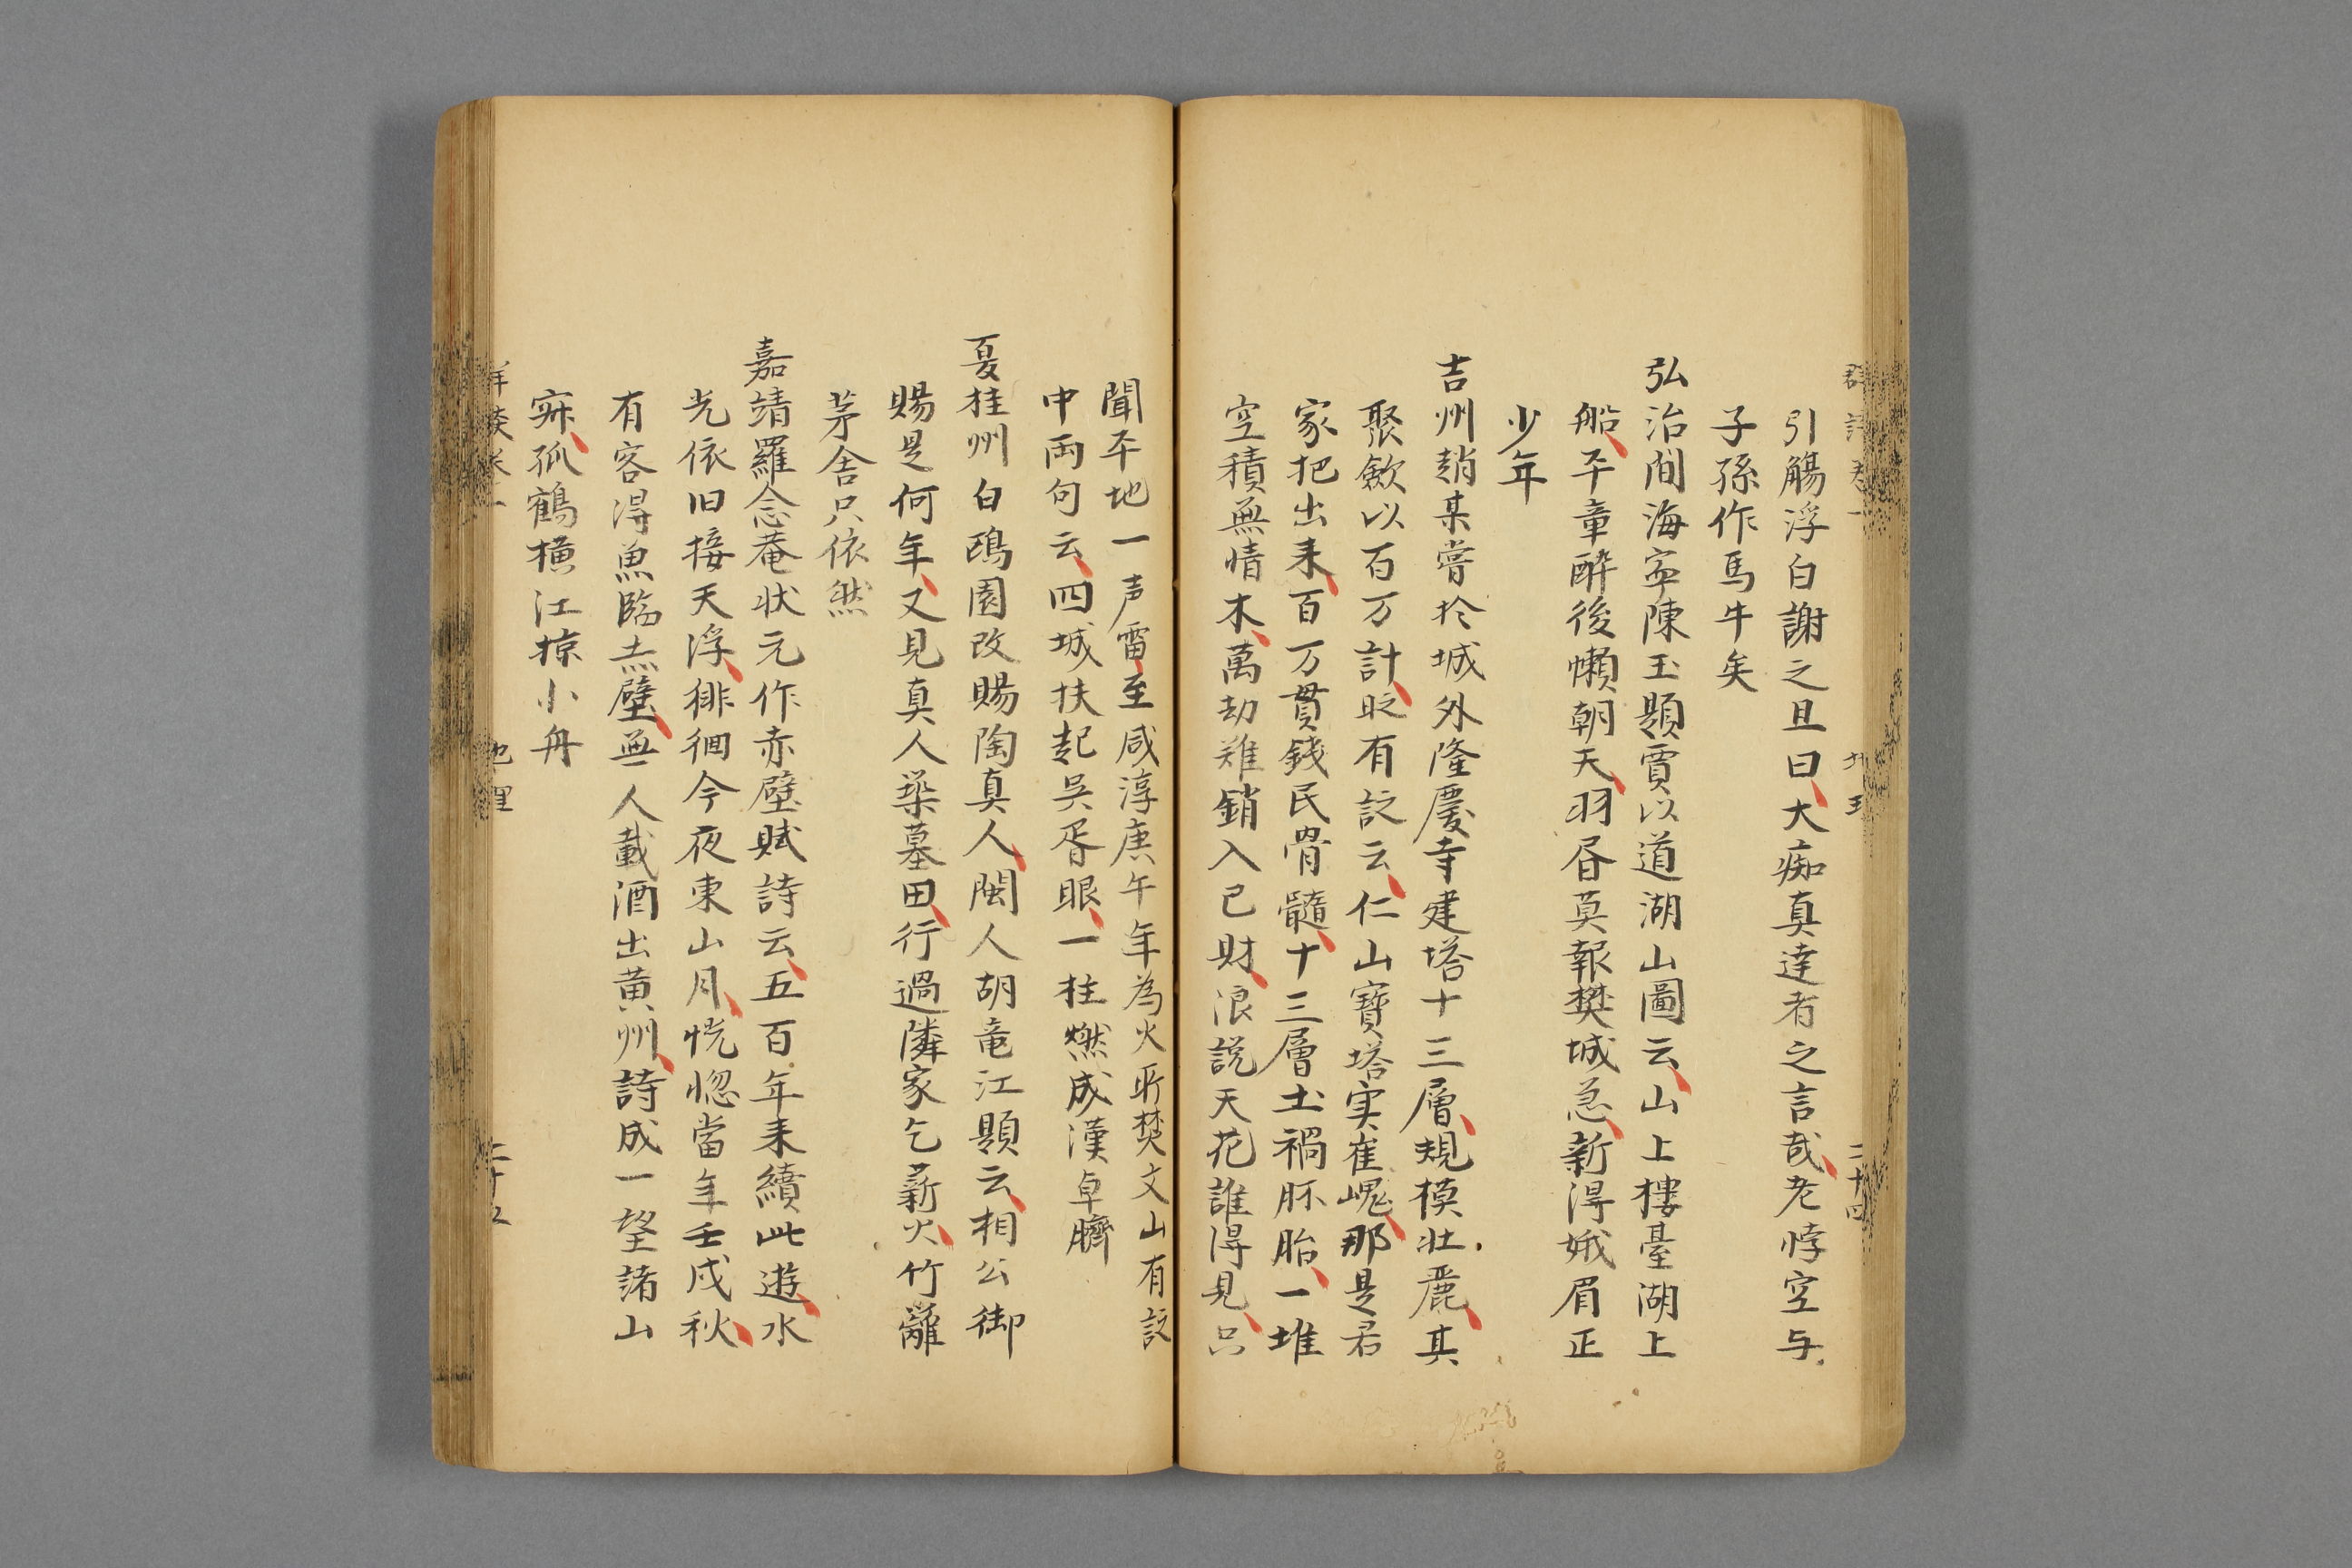 引觴浮白謝之且曰大痴真達者之言哉老悖空与
子孫作馬牛矣
弘治間海寧陳玉題賈以道湖山圖云山上樓臺湖上
船平章醉後懶朝天羽昏莫報樊城急新得娥眉正
少年
吉州趙某嘗於城外隆慶寺建塔十三層規模壯麗其
聚歛以百万計貶有詩云仁山寶塔实崔嵬那是君
家把出来百万貫錢民骨髓十三層土禍胚胎一堆
空積無情木萬劫难銷入己財浪説天花誰得見只
聞平地一声雷至咸淳庚午年為火所焚文山有詩
中両句云四城扶起吳胥眼一柱燃成漢卓臍
夏桂州白鷗園改賜陶真人閩人胡竜江題云相公御
賜是何年又見真人築墓田行過隣家乞薪火竹籬
茅舍只依然
嘉靖羅念菴状元作赤壁賦詩云五百年来續此遊水
光依旧接天浮徘徊今夜東山月恍惚當年壬戌秋
有客得魚臨赤壁無人載酒出黄州詩成一望諸山
寐孤鶴横江掠小舟
地理